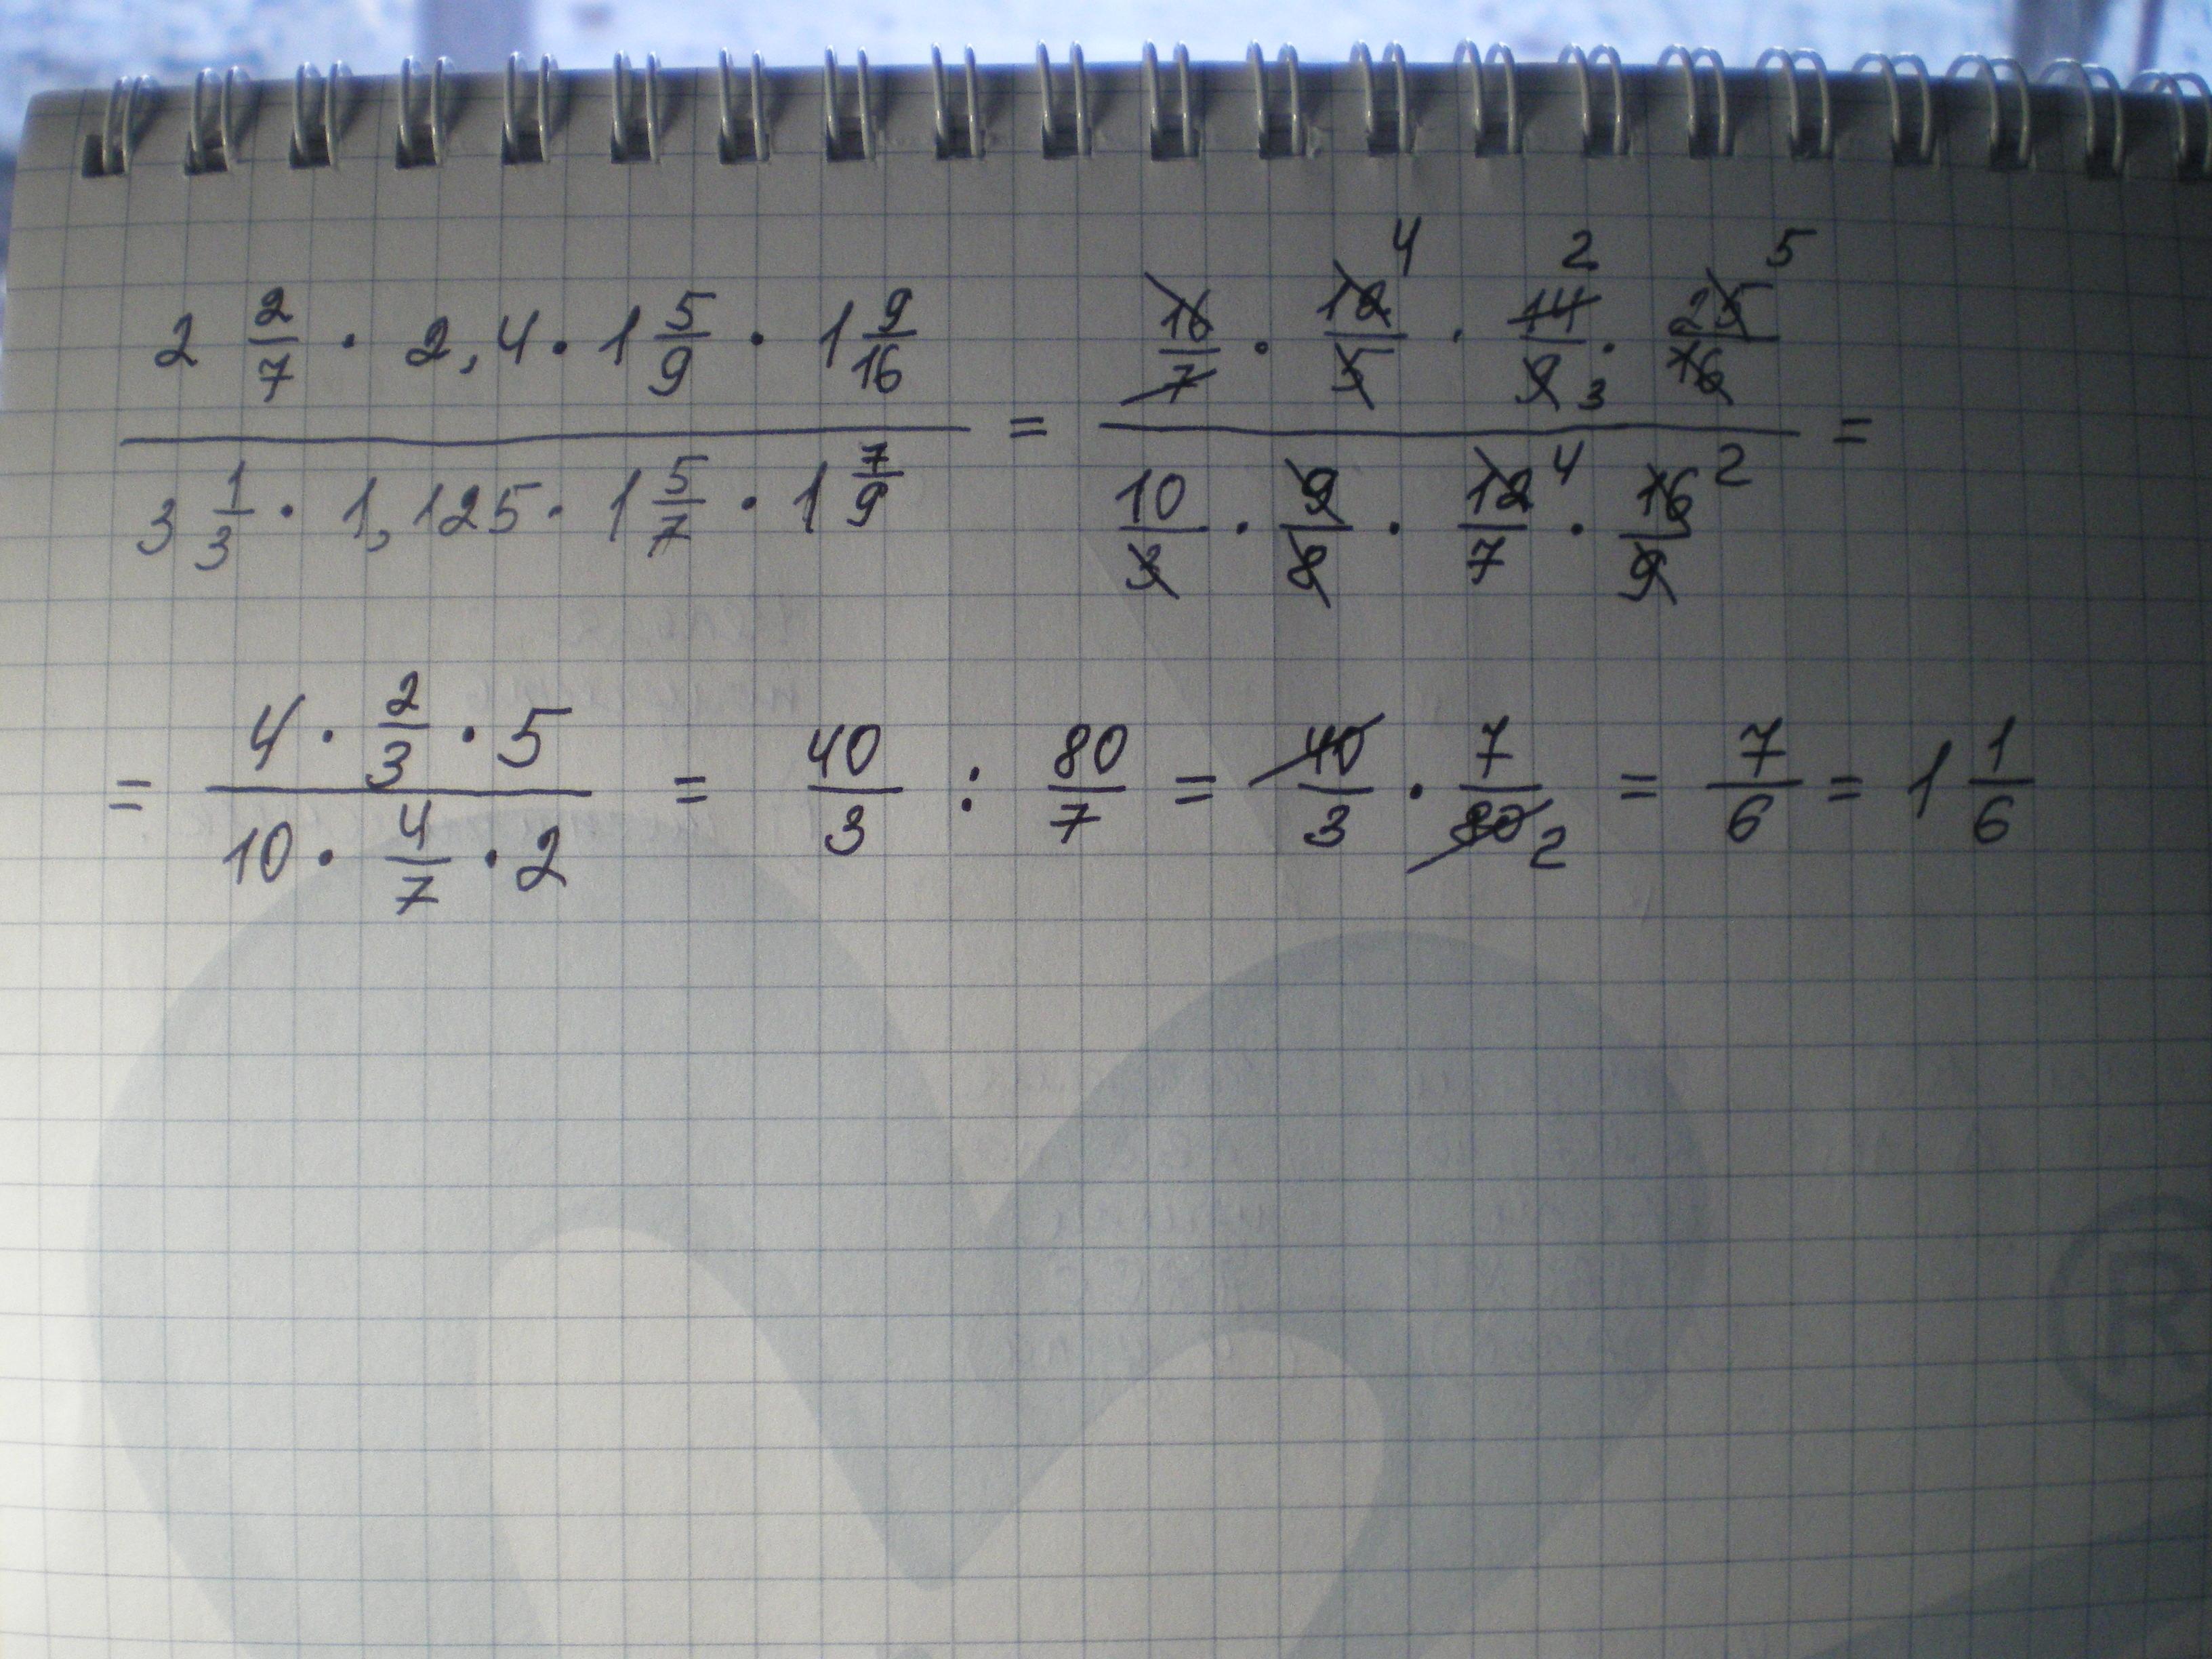 2 2/7 · 2,4 · 1 5/9 · 1 9/16 / 3 1/3 · 1,125 · 1 5/7 · 1 7/9 = 16/7 · 12/5 4 · 14/9 2 3 · 25/16 5 / 10/3 · 9/8 · 12/7 4 · 16/9 2 =
= 4 · 2/3 · 5 / 10 · 4/7 · 2 = 40/3 : 80/7 = 40/3 · 7/80 2 = 7/6 = 1 1/6
®